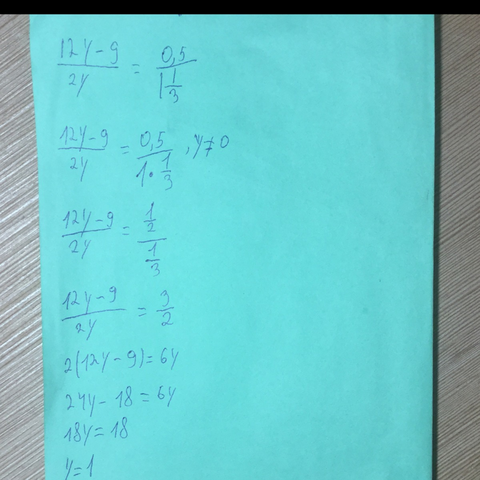 (12y-9)/(2y) = 0,5/(1 1/3)
(12y-9)/(2y) = 0,5/(1·1/3), y≠0
(12y-9)/(2y) = (1/2)/(1/3)
(12y-9)/(2y) = 3/2
2(12y-9)=6y
24y-18=6y
18y=18
y=1